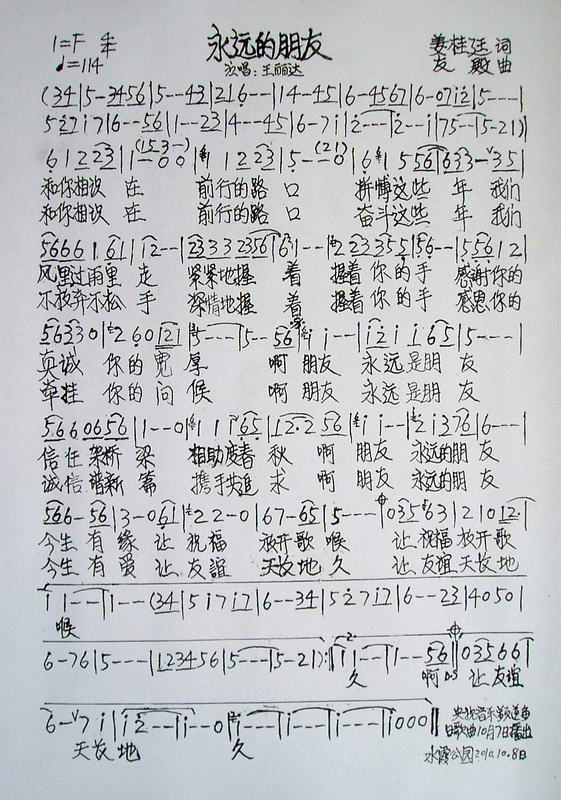 1=F 4/4
永远的朋友
姜桂廷 词
♩=114
演唱：王丽达
友 殿 曲
(34|5-3456|5--43|216--|14--45|6-4567|6-07i2|5---|
52i7i7|6--56|1--23|4---45|6-7i|2---|2--i|75--|5-21)|
61223|1(153-)--00|1 1223|5--(21)--0|61556|633-35|
和你相识 在 前行的路 口 拼搏这些 年 我们
和你相识 在 前行的路 口 奋斗这些 年 我们
5666 1 61|12--|23332356|61--|2233555|56--|55612|
风里过雨里 走 紧紧地握 着 握着你的手 感谢你的
不放弃不松 手 深情地握 着 握着你的手 感思你的
56330|26021|5---|5--56|i i--|i2i i65|5---|
真诚 你的宽 厚 啊 朋友 永远是朋 友
牵挂 你的问 候 啊 朋友 永远是朋 友
566 0656|1--0|1 1 1 65|12·256|i i--|2i376|6---|
信任架桥 梁 相助度春 秋 啊 朋友 永远的朋 友
诚信谱新 篇 携手共追 求 啊 朋友 永远的朋 友
566-56|3-061|22-0|67-65|5---|03563|21012·|
今生 有 缘 让 祝福 放开歌 喉 让 祝福 放开歌
今生 有 爱 让 友谊 天长地 久 让 友谊 天长地
i 1--|1--(34|5i7i7|6--34|527i7|6--23|4050|
喉
6-76|5---|123456|5---|5-21):|1 1--|1--56|035666|
久 啊 D.S 让 友谊
6-7i|i2--|i--0|i---|i---|i---|i000‖
天长 地 久
央视音乐频道每
日歌曲10月7日播出
水霞公园2010.10.8日